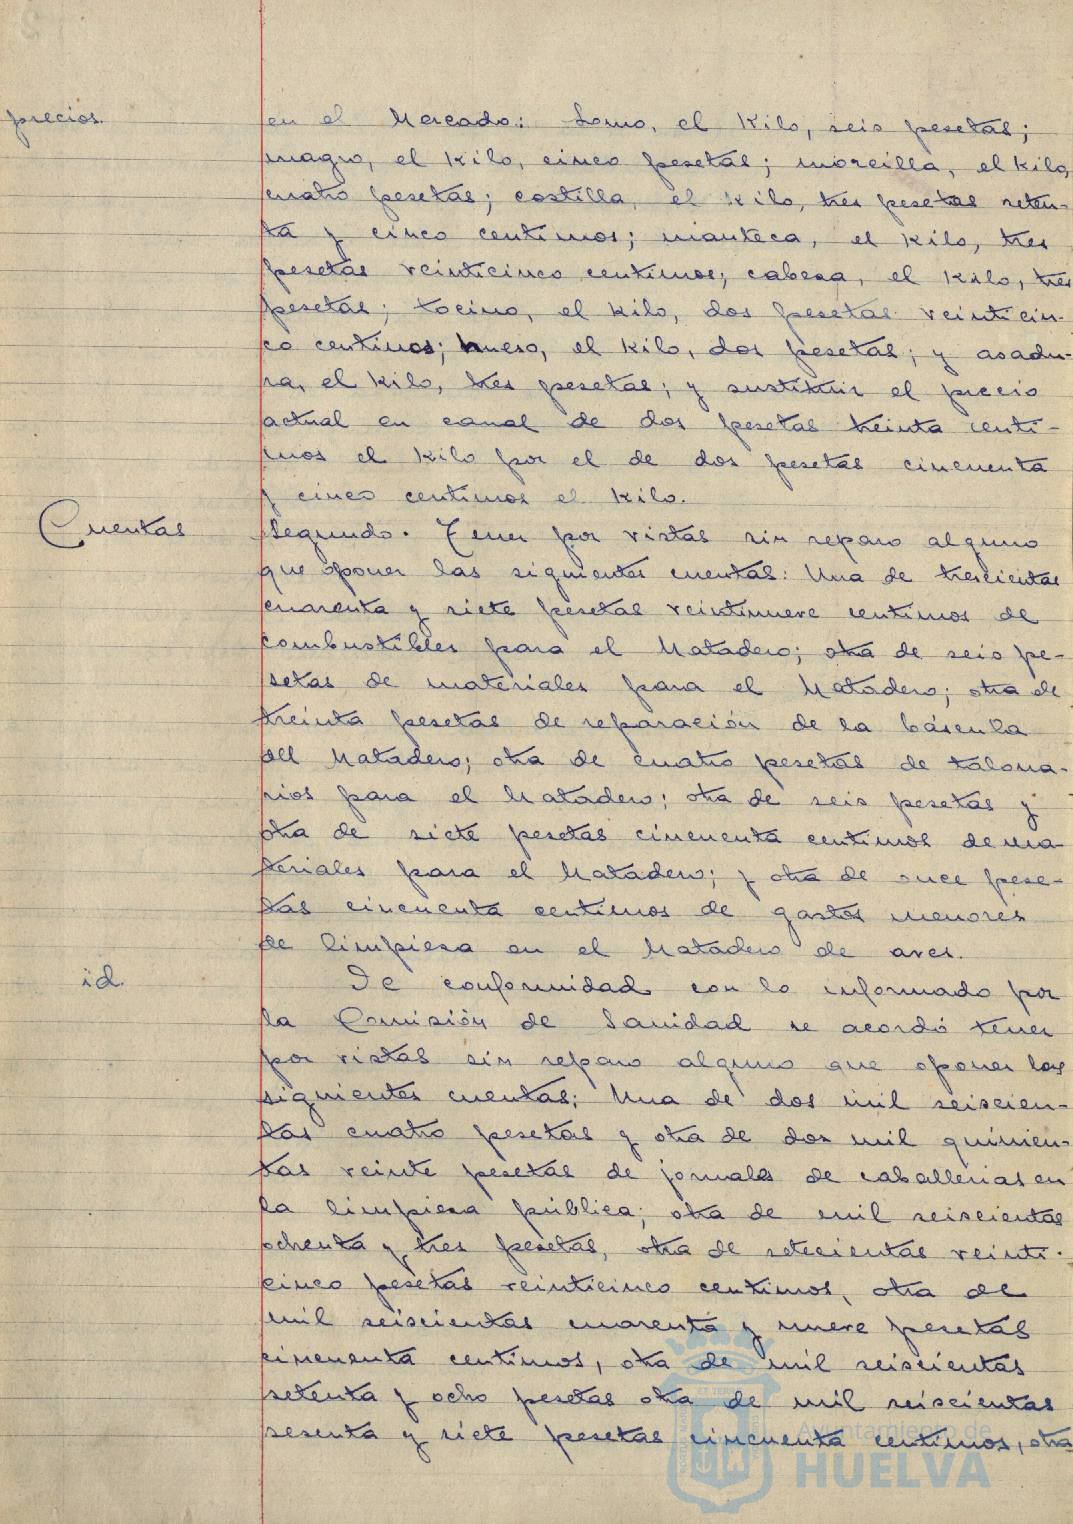 precios.
en el Mercado: Lomo, el Kilo, seis pesetas;
magro, el kilo, cinco pesetas; morcilla, el kilo,
cuatro pesetas; costilla, el kilo, tres pesetas seten-
ta y cinco centimos; manteca, el kilo, tres
pesetas veinticinco centimos; cabeza, el kilo, tres
pesetas; tocino, el kilo, dos pesetas veinticin-
co centimos; hueso, el kilo, dos pesetas; y asadu-
ra, el kilo, tres pesetas; y sustituir el precio
actual en canal de dos pesetas treinta centi-
mos el kilo por el de dos pesetas cincuenta
y cinco centimos el kilo.
Cuentas
Segundo. Tener por vistas sin reparo alguno
que oponer las siguientes cuentas: Una de trescientas
cuarenta y siete pesetas veintinueve centimos de
combustibles para el Matadero; otra de seis pe-
setas de materiales para el Matadero; otra de
treinta pesetas de reparación de la báscula
del Matadero; otra de cuatro pesetas de talona-
rios para el Matadero; otra de seis pesetas y
otra de siete pesetas cincuenta centimos de ma-
teriales para el Matadero; y otra de once pese-
tas cincuenta centimos de gastos menores
de limpieza en el Matadero de aves.
id.
De conformidad con lo informado por
la Comisión de Sanidad se acordó tener
por vistas sin reparo alguno que oponer las
siguientes cuentas: Una de dos mil seiscien-
tas cuatro pesetas y otra de dos mil quinien-
tas veinte pesetas de jornales de caballerias en
la limpieza pública; otra de mil seiscientas
ochenta y tres pesetas, otra de setecientas veinti-
cinco pesetas veinticinco centimos, otra de
mil seiscientas cuarenta y nueve pesetas
cincuenta centimos, otra de mil seiscientas
setenta y ocho pesetas otra de mil seiscientas
sesenta y siete pesetas cincuenta centimos, otra
Ayuntamiento de
HUELVA